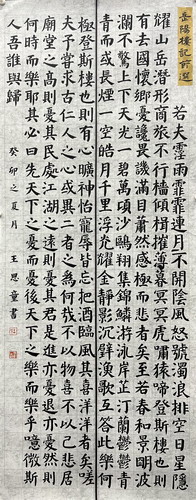 岳陽樓記節選
若夫霪雨霏霏連月不開陰風怒號濁浪排空日星隱
耀山岳潛形商旅不行檣傾楫摧薄暮冥冥虎嘯猿啼登斯樓也則
有去國懷鄉憂讒畏譏滿目蕭然感極而悲者矣至若春和景明波
瀾不驚上下天光一碧萬頃沙鷗翔集錦鱗游泳岸芷汀蘭鬱鬱青
青而或長煙一空皓月千里浮光耀金静影沉璧漁歌互答此樂何
極登斯樓也則有心曠神怡寵辱皆忘把酒臨風其喜洋洋者矣嗟
夫予嘗求古仁人之心或異二者之為何哉不以物喜不以己悲居
廟堂之高則憂其民處江湖之遠則憂其君是進亦憂退亦憂然則
何時而樂耶其必曰先天下之憂而憂後天下之樂而樂乎噫微斯
人吾誰與歸
癸卯之夏月 王思童書